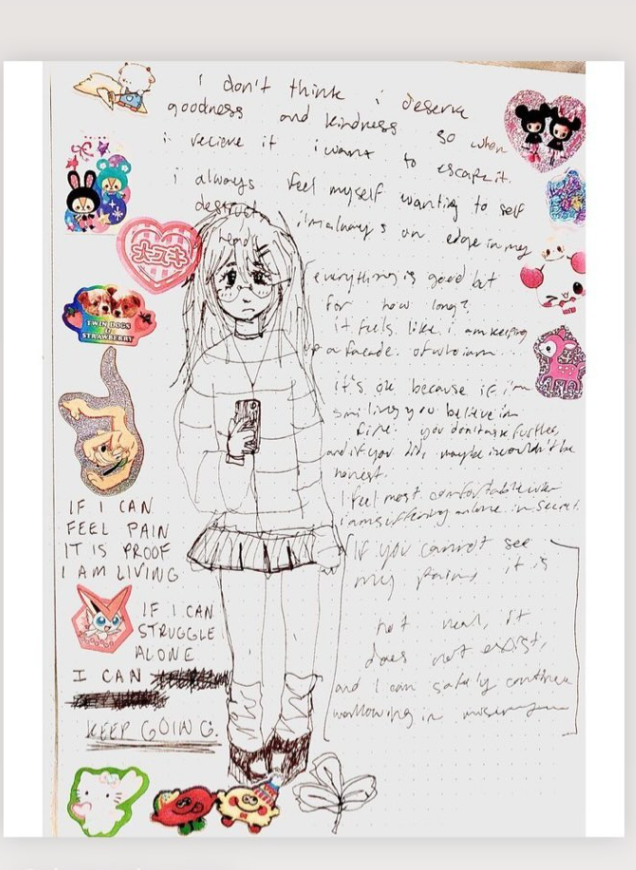 i don't think i deserve
goodness and kindness so when
i recieve it i want to escape it.
i always feel myself wanting to self
destruct. i'm always on edge in my
head
everything is good but
for how long?
it feels like i am keeping
up a facade. of who i am...
it's ok because if i'm
smiling you believe im
fine. you don't ask further,
and if you did, maybe i wouldn't be
honest.
I feel most comfortable when
i am suffering alone in secret.
If you cannot see
my pain, it is
not real, it
does not exist,
and I can safely continue
wallowing in misery
大スキ
TWIN DOGS
STRAWBERRY
IF I CAN
FEEL PAIN
IT IS PROOF
I AM LIVING
IF I CAN
STRUGGLE
ALONE
I CAN
KEEP GOING.